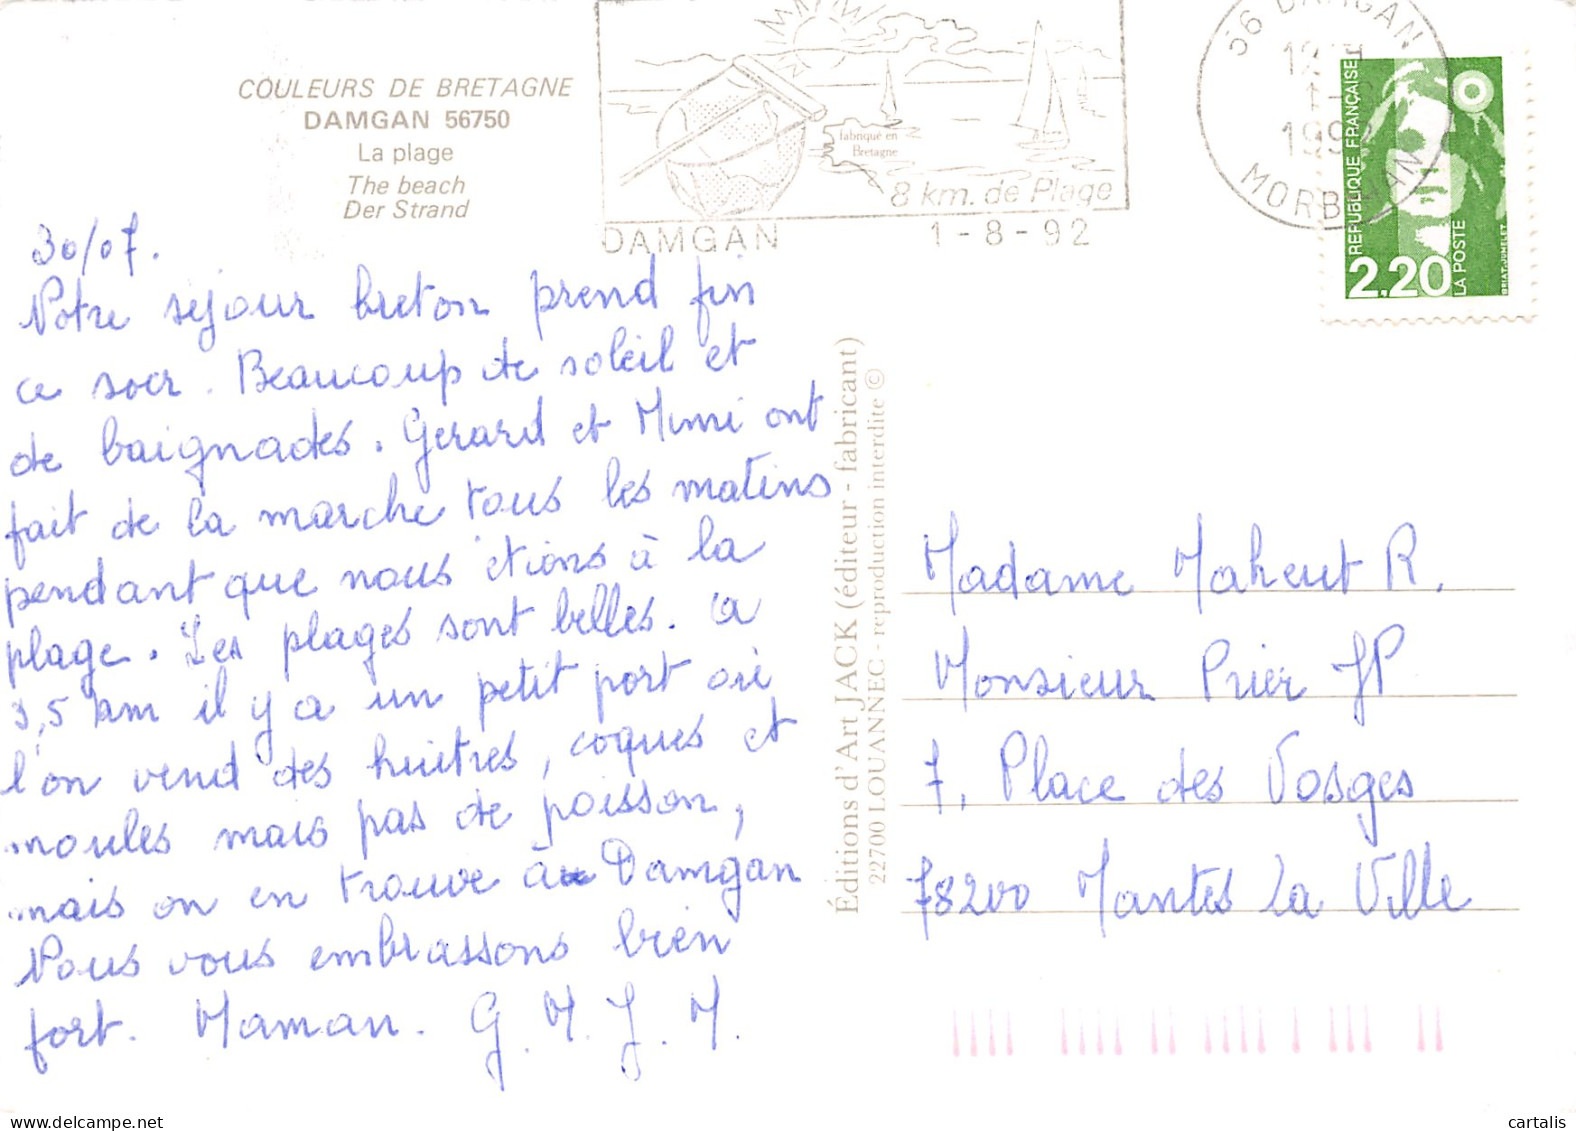 COULEURS DE BRETAGNE
DAMGAN 56750
La plage
The beach
Der Strand
fabriqué en
Bretagne
8 km. de Plage
DAMGAN 1-8-92
56 DAMGAN
1992
MORBIHAN
REPUBLIQUE FRANÇAISE
2,20
LA POSTE
BRIAT.JUMELET
30/07.
Notre séjour breton prend fin
ce soir. Beaucoup de soleil et
de baignades. Gerard et Mimi ont
fait de la marche tous les matins
pendant que nous étions à la
plage. Les plages sont belles. a
3,5 km il y a un petit port où
l'on vend des huitres, coques et
moules mais pas de poisson,
mais on en trouve à Damgan
Nous vous embrassons bien
fort. Maman. G. M. J. M.
Éditions d'Art JACK (éditeur - fabricant)
22700 LOUANNEC - reproduction interdite ©
Madame Maheut R.
Monsieur Prier JP
7, Place des Vosges
78200 Mantes la Ville
cartalis